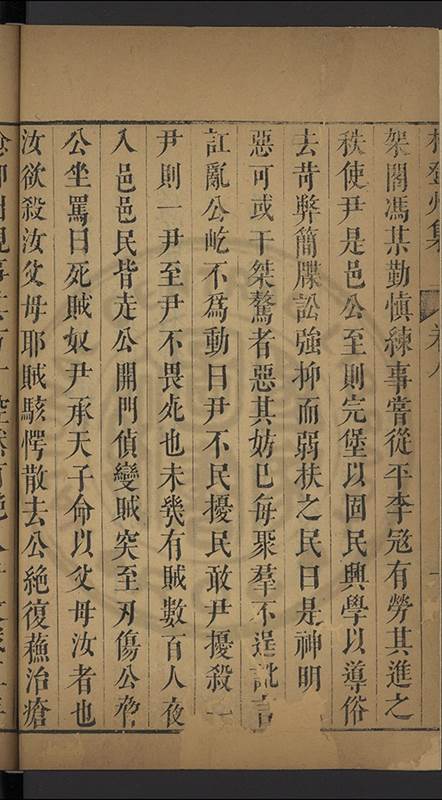 登州集
架閣馮某勤慎練事嘗從平李寇有勞其進之
秩使尹是邑公至則完堡以固民興學以導俗
去苛弊簡牒訟強抑而弱扶之民曰是神明
惡可或干桀驁者惡其妨巳每聚羣不逞訛言
訌亂公屹不爲動曰尹不民擾民敢尹擾殺一
尹則一尹至尹不畏死也未幾有賊數百人夜
入邑邑民皆走公開門偵變賊突至刃傷公
公坐罵曰死賊奴尹承天子命以父母汝者也
汝欲殺汝父母耶賊駭愕散去公絶復蘓治瘡